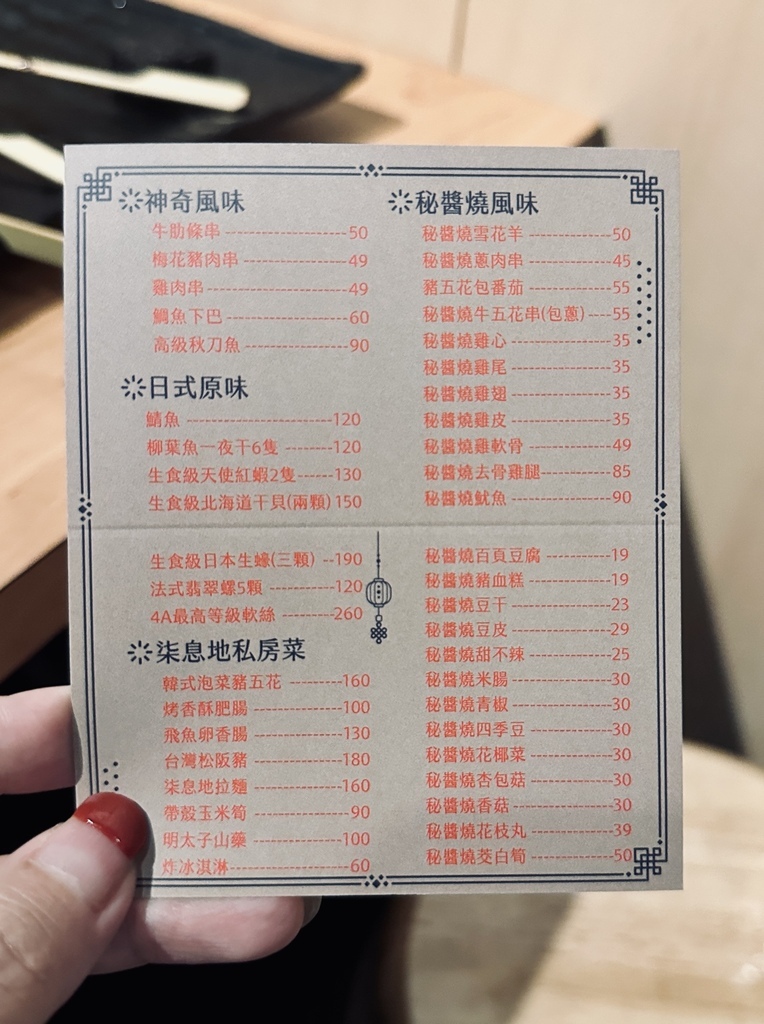 神奇風味
牛肋條串 50
梅花豬肉串 49
雞肉串 49
鯛魚下巴 60
高級秋刀魚 90
日式原味
鯖魚 120
柳葉魚一夜干6隻 120
生食級天使紅蝦2隻 130
生食級北海道干貝(兩顆) 150
生食級日本生蠔(三顆) 190
法式翡翠螺5顆 120
4A最高等級軟絲 260
柒息地私房菜
韓式泡菜豬五花 160
烤香酥肥腸 100
飛魚卵香腸 130
台灣松阪豬 180
柒息地拉麵 160
帶殼玉米筍 90
明太子山藥 100
炸冰淇淋 60
秘醬燒風味
秘醬燒雪花羊 50
秘醬燒蔥肉串 45
豬五花包番茄 55
秘醬燒牛五花串(包蔥) 55
秘醬燒雞心 35
秘醬燒雞尾 35
秘醬燒雞翅 35
秘醬燒雞皮 35
秘醬燒雞軟骨 49
秘醬燒去骨雞腿 85
秘醬燒魷魚 90
秘醬燒百頁豆腐 19
秘醬燒豬血糕 19
秘醬燒豆干 23
秘醬燒豆皮 29
秘醬燒甜不辣 25
秘醬燒米腸 30
秘醬燒青椒 30
秘醬燒四季豆 30
秘醬燒花椰菜 30
秘醬燒杏包菇 30
秘醬燒香菇 30
秘醬燒花枝丸 39
秘醬燒茭白筍 50